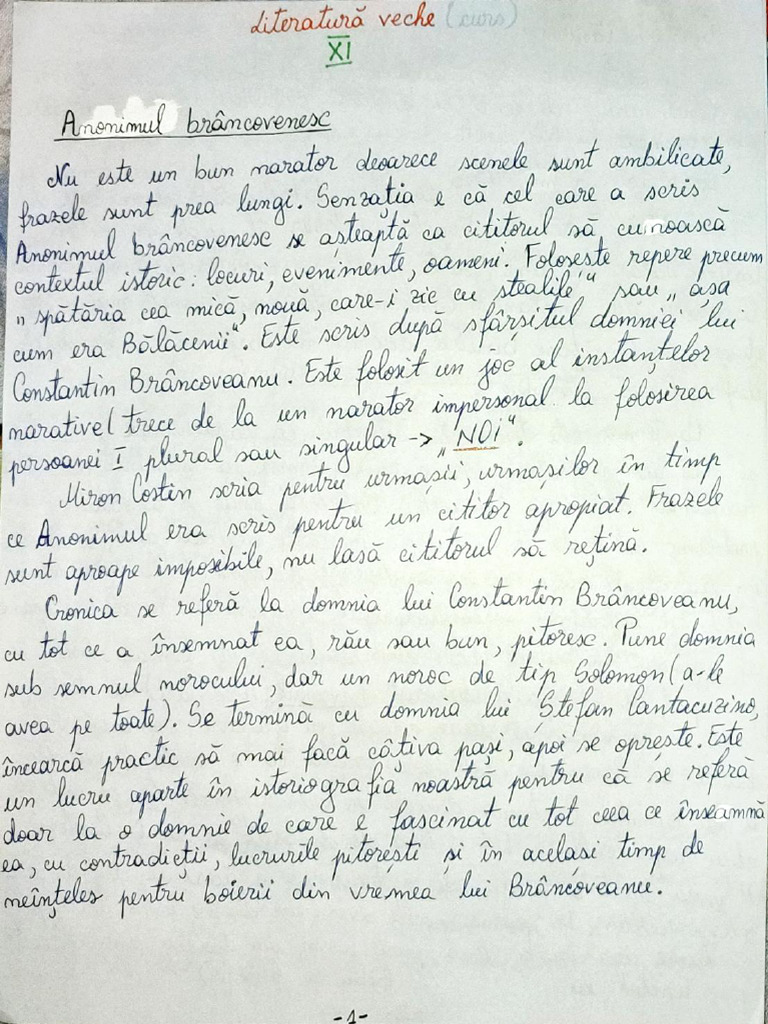 Literatură veche (curs)
XI
Anonimul brâncovenesc
Nu este un bun narator deoarece scenele sunt ambilicate,
frazele sunt prea lungi. Senzația e că cel care a scris
Anonimul brâncovenesc se așteaptă ca cititorul să cunoască
contextul istoric: locuri, evenimente, oameni. Folosește repere precum
„spătăria cea mică, nouă, care-i zic cu stealile" sau „așa
cum era Bălăcenii". Este scris după sfârșitul domniei lui
Constantin Brâncoveanu. Este folosit un joc al instanțelor
narative (trece de la un narator impersonal la folosirea
persoanei I plural sau singular -> „NOI".
Miron Costin scria pentru urmașii, urmașilor în timp
ce Anonimul era scris pentru un cititor apropiat. Frazele
sunt aproape imposibile, nu lasă cititorul să rețină.
Cronica se referă la domnia lui Constantin Brâncoveanu,
cu tot ce a însemnat ea, rău sau bun, pitoresc. Pune domnia
sub semnul norocului, dar un noroc de tip Solomon (a-le
avea pe toate). Se termină cu domnia lui Ștefan Cantacuzino,
încearcă practic să mai facă câțiva pași, apoi se oprește. Este
un lucru aparte în istoriografia noastră pentru că se referă
doar la o domnie de care e fascinat cu tot ceea ce înseamnă
ea, cu contradicții, lucrurile pitorești și în același timp de
neînțeles pentru boierii din vremea lui Brâncoveanu.
-1-